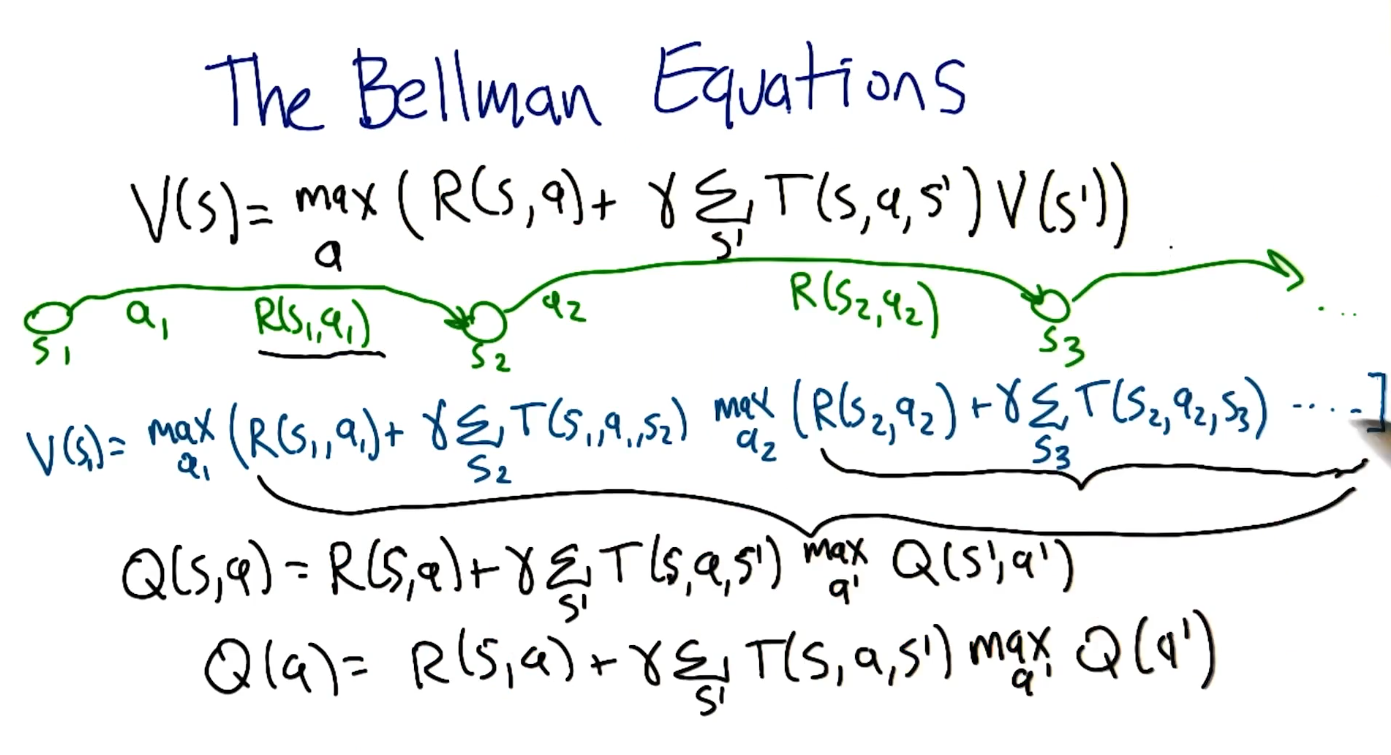 The Bellman Equations
V(s) = max_a (R(s,a) + γ Σ_s' T(s,a,s') V(s'))
s1 a1 R(s1,a1) s2 a2 R(s2,a2) s3 ....
V(s1) = max_a1 (R(s1,a1) + γ Σ_s2 T(s1,a1,s2) max_a2 (R(s2,a2) + γ Σ_s3 T(s2,a2,s3) ....]
Q(s,a) = R(s,a) + γ Σ_s' T(s,a,s') max_a' Q(s',a')
Q(a) = R(s,a) + γ Σ_s' T(s,a,s') max_a' Q(a')